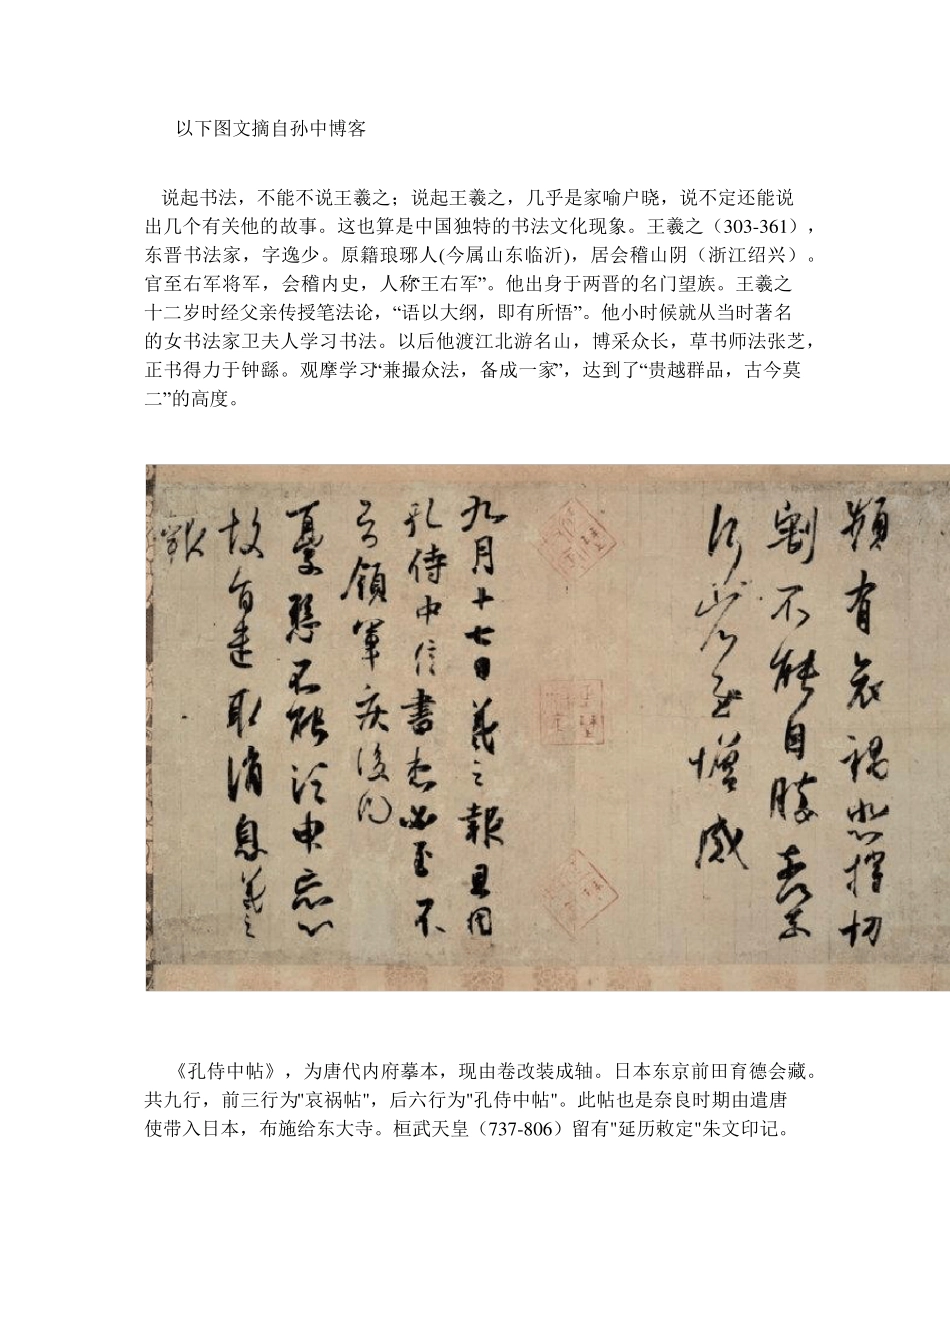 以下图文摘自孙中博客
说起书法，不能不说王羲之；说起王羲之，几乎是家喻户晓，说不定还能说
出几个有关他的故事。这也算是中国独特的书法文化现象。王羲之（303-361），
东晋书法家，字逸少。原籍琅琊人(今属山东临沂)，居会稽山阴（浙江绍兴）。
官至右军将军，会稽内史，人称“王右军”。他出身于两晋的名门望族。王羲之
十二岁时经父亲传授笔法论，“语以大纲，即有所悟”。他小时候就从当时著名
的女书法家卫夫人学习书法。以后他渡江北游名山，博采众长，草书师法张芝，
正书得力于钟繇。观摩学习“兼撮众法，备成一家”，达到了“贵越群品，古今莫
二”的高度。
頻有哀禍悲摧切
割不能自勝奈何
奈何省慰增感
九月十七日羲之報且因
孔侍中信書想必至不
知領軍疾後問
憂懸不能須臾忘心
故旨遣取消息羲之
報
《孔侍中帖》，为唐代内府摹本，现由卷改装成轴。日本东京前田育德会藏。
共九行，前三行为"哀祸帖"，后六行为"孔侍中帖"。此帖也是奈良时期由遣唐
使带入日本，布施给东大寺。桓武天皇（737-806）留有"延历敕定"朱文印记。